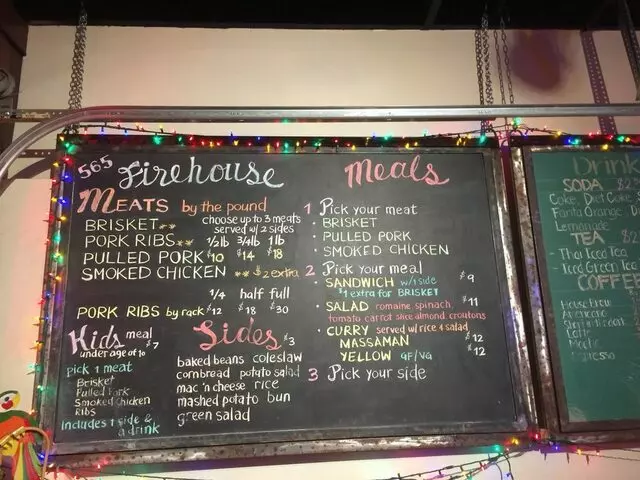 565 Firehouse
MEATS by the pound
BRISKET**
PORK RIBS**
PULLED PORK
SMOKED CHICKEN
choose up to 3 meats
served w/ 2 sides
1/2lb 3/4lb 1lb
$10 $14 $18
** $2 extra
1/4 half full
PORK RIBS by rack $12 $18 $30
Kids meal
under age of 10 $7
pick 1 meat
Brisket
Pulled Pork
Smoked Chicken
Ribs
includes 1 side &
a drink
Sides $3
baked beans coleslaw
cornbread potato salad
mac 'n cheese rice
mashed potato bun
green salad
Meals
1 Pick your meat
· BRISKET
· PULLED PORK
· SMOKED CHICKEN
2 Pick your meal
· SANDWICH w/1 side $9
$1 extra for BRISKET
· SALAD romaine, spinach, $11
tomato carrot slice almond, croutons
· CURRY served w/ rice & salad
MASSAMAN $12
YELLOW GF/VG $12
3 Pick your side
Drink
SODA $2
Coke, Diet Coke
Fanta Orange
Lemonade
TEA $2
- Thai Iced Tea
- Iced Green Tea
COFFEE
House Brew
Americano
Mocha
Espresso